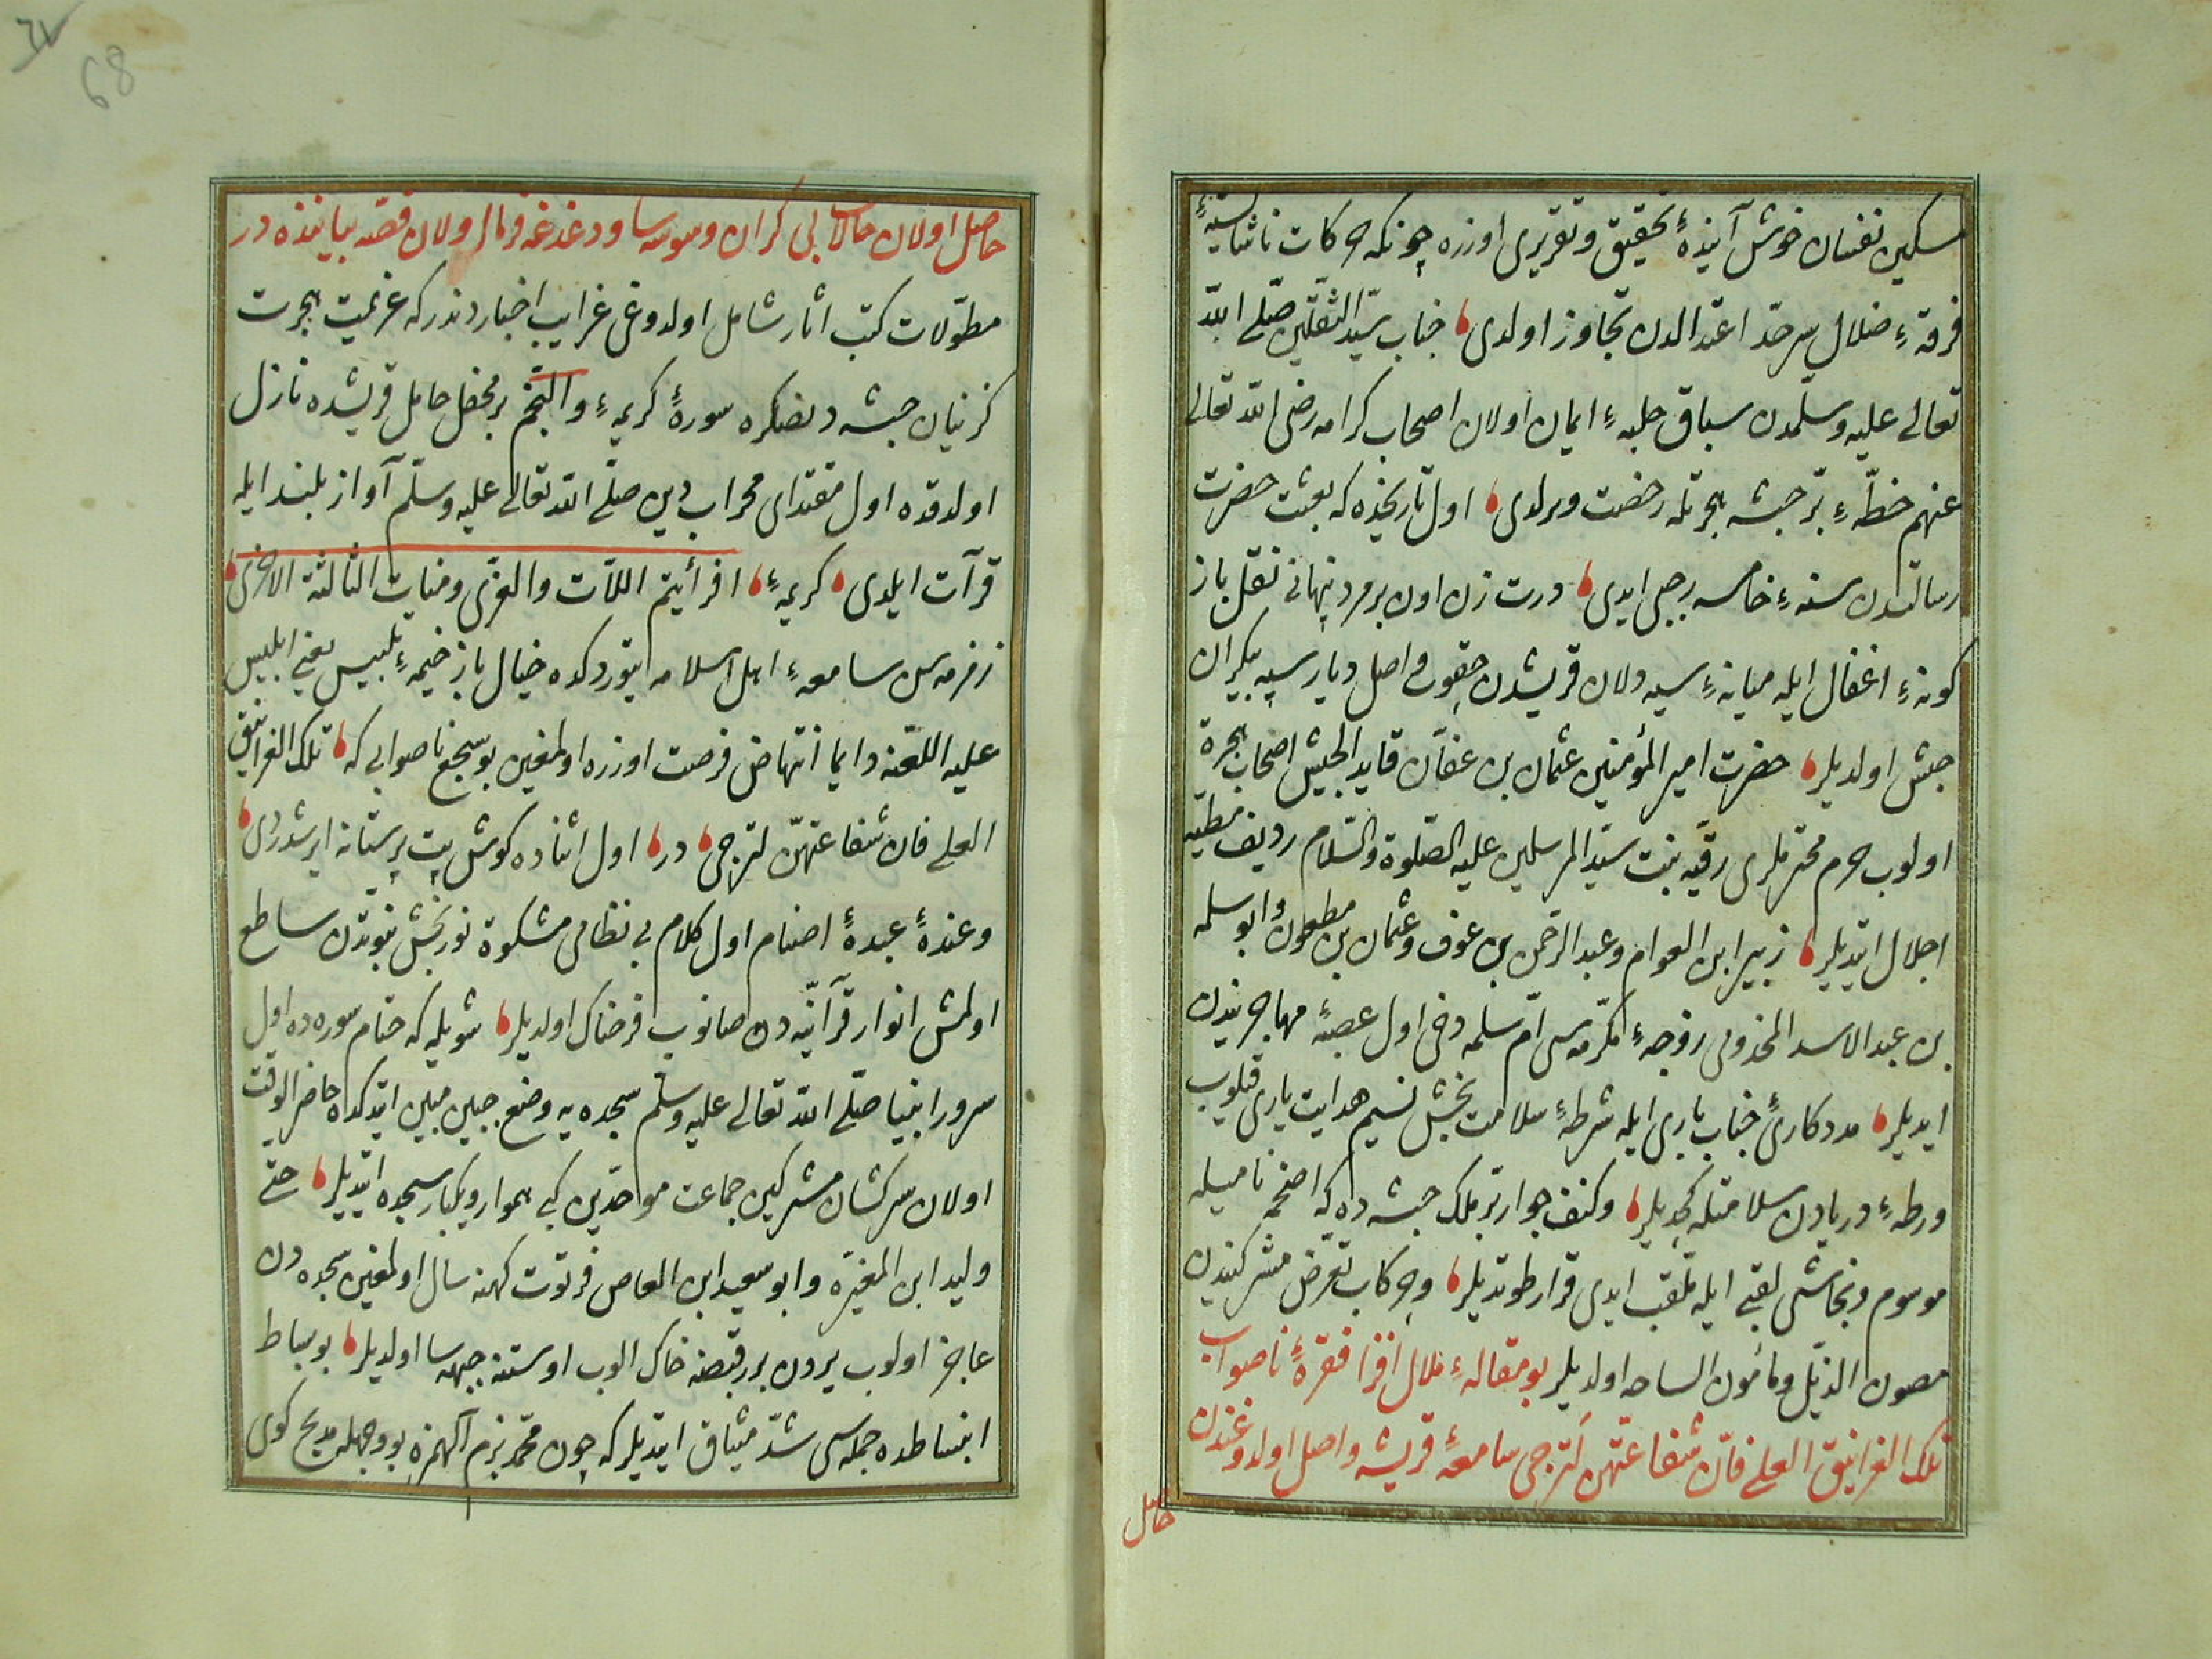 مسکین نفسان خوش آینده‌ٔ تحقیق و تقریری اوزره چونکه حرکات ناشایسته‌ٔ
فرقه‌ٔ ضلال سرحدّ اعتدالدن تجاوز اولدی، جناب سیّد الثّقلین صلّی الله
تعالی علیه وسلّمدن سباق حلبه‌ٔ ایمان اولان اصحاب کرامه رضی الله تعالی
عنهم خطّه‌ٔ برّ حبشه هجرتله رخصت ویرلدی، اول تاریخده که بعثت حضرت
رسالتدن سنه‌ٔ خامسه رجبی ایدی، درت زن اون بر مرد پنهانی نقل باز
کونه‌ٔ اغفال ایله میانه‌ٔ سیه دلان قریشدن چقوب واصل دیار سیه پیکران
حبش اولدیلر، حضرت امیر المؤمنین عثمان بن عفّان قاید الجیش اصحاب هجرة
اولوب حرم محترملری رقیّه بنت سیّد المرسلین علیه الصّلوة والسّلام ردیف مطیّه
اجلال ایتدیلر، زبیر ابن العوام وعبد الرّحمن بن عوف وعثمان بن مظعون وابو سلمه
بن عبد الاسد المخذومی زوجه‌ٔ مکرّمه‌سی امّ سلمه دخی اول عصبه‌ٔ مهاجریندن
ایدیلر، مددکاریٔ جناب باری ایله شرطه‌ٔ سلامت بخش نسیم هدایت یاری قیلوب
ورطه‌ٔ دریادن سلامتله کچدیلر، وکنف جوار برّ ملک حبشه ده که اضحمه نامیله
موسوم ونجاشی لقبی ایله ملقب ایدی قرار طوتدیلر، وچرکاب تعرّض مشرکیندن
مصون الذّیل ومأمون الساحه اولدیلر بو مقاله‌ٔ ملال افزا فقره‌ٔ ناصواب
تلک الغرانیق العلی فانّ شفاعتهن لترجی سامعه‌ٔ قریشه واصل اولدوغندن
حاصل
حاصل اولان حالات بی کران وسوسه سا ودغدغه فرمالر ولان قصّه بیاننده در
مطوّلات کتب اثار شامل اولدوغی غرایب اخباردندر که عزیمت هجرت
کزینان حبشه دنصکره سوره‌ٔ کریمه‌ٔ والنجم بر محفل حامل قریشده نازل
اولدقده اول مقتدای محراب دین صلّی الله تعالی علیه وسلّم آواز بلند ایله
قرآت ایلدی، کریمه‌ٔ، افرأیتم اللاّت والعزّی ومنات الثالثة الاخری،
زمزمه‌سن سامعه‌ٔ اهل اسلامه ایتوردکده خیال باز خیمه‌ٔ تلبیس یعنی ابلیس
علیه اللعنه دایما انتهاض فرصت اوزره اولمغین بو سجع ناصوابی که، تلک الغرانیق
العلی فان شفاعتهنّ لترجی، در، اول اثناده کوش بت پرستانه ایرشدردی،
وعنده‌ٔ عبده‌ٔ اصنام اول کلام بی نظامی مشکوة نوربخش نبوّتدن ساطع
اولمش انوار قرآنیّه دن صانوب فرحناک اولدیلر، شویله که ختام سوره ده اول
سرور انبیا صلّی الله تعالی علیه وسلّم سجده یه وضع جبین مبین ایتدکده حاضر الوقت
اولان سرکشان مشرکین جماعت موحّدین کبی هموار ویکبار سجده ایتدیلر، حتّی
ولید ابن المغیره وابو سعید ابن العاص فرتوت کهنه سال اولمغین سجده دن
عاجز اولوب یردن برر قبضه خاک الوب اوستنه جبهه سا اولدیلر، بو بساط
انبساطده جمله‌سی شدّ میثاق ایتدیلر که چون محمّد بزم آلهمزه بو وجهله مدیح کوی